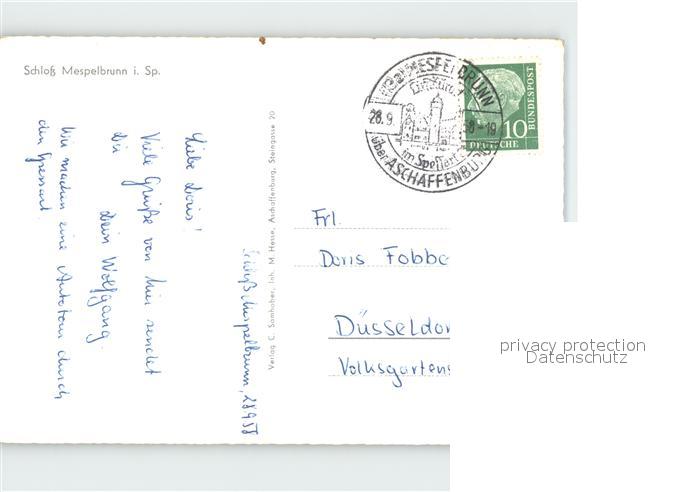 Schloß Mespelbrunn i. Sp.
Schloß Mespelbrunn, 28.9.58
Liebe Doris!
Viele Grüße von hier sendet
Dir
Dein Wolfgang.
Wir machen eine Autotour durch
den Spessart.
Verlag C. Samhaber, Inh. M. Hesse, Aschaffenburg, Steingasse 20
MESPELBRUNN
28.9.
58-19
im Spessart
über ASCHAFFENBURG
10
DEUTSCHE
BUNDESPOST
Frl.
Doris Fobbe
Düsseldor
Volksgartens
privacy protection
Datenschutz